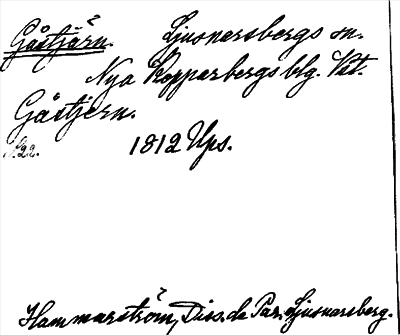 Gåstjärn. Ljusnarsbergs sn.
Nya Kopparbergs blg. Vst.
Gåstjern.
S. 22. 1812 Ups.
Hammarström, Diss. de Par. Ljusnarsberg.